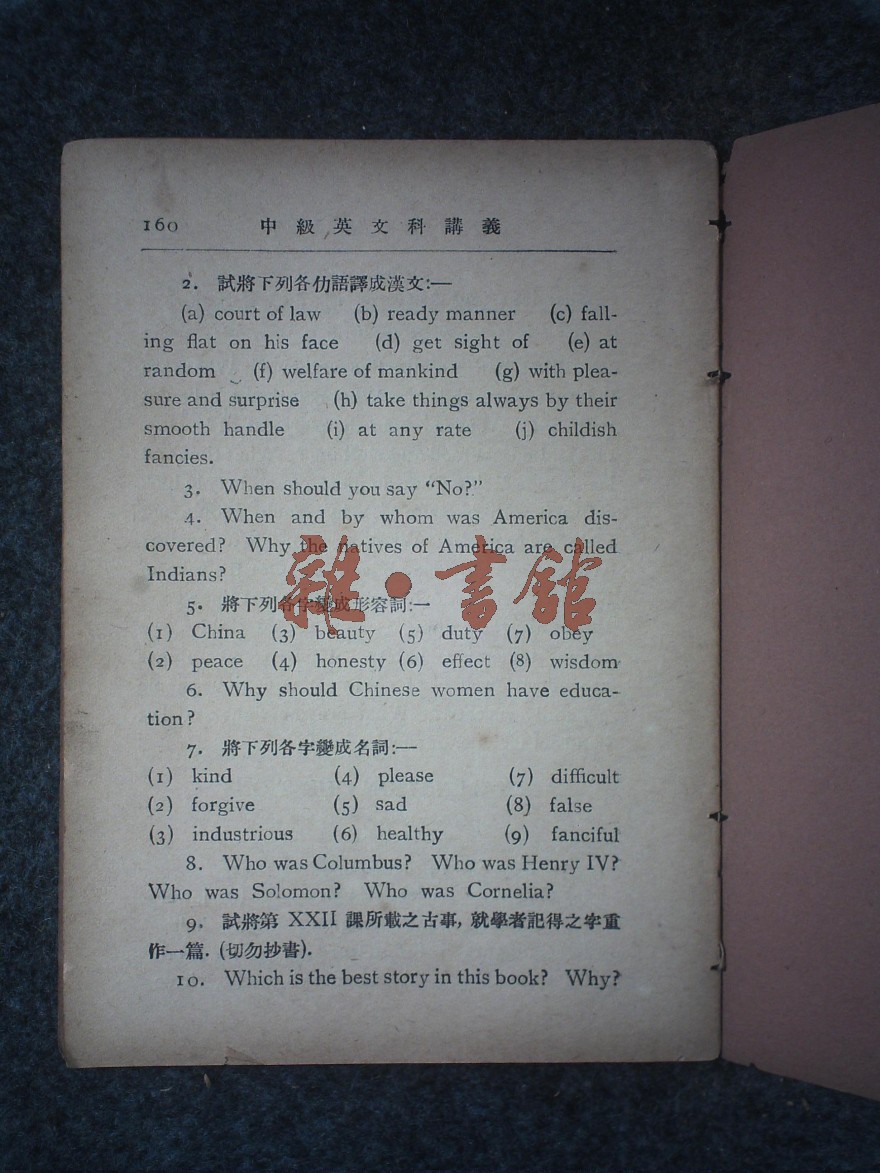 160 中級英文科講義
2. 試將下列各仂語譯成漢文:—
(a) court of law (b) ready manner (c) fall-
ing flat on his face (d) get sight of (e) at
random (f) welfare of mankind (g) with plea-
sure and surprise (h) take things always by their
smooth handle (i) at any rate (j) childish
fancies.
3. When should you say “No?”
4. When and by whom was America dis-
covered? Why the natives of America are called
Indians?
雜•書館
5. 將下列各字變成形容詞:—
(1) China (3) beauty (5) duty (7) obey
(2) peace (4) honesty (6) effect (8) wisdom
6. Why should Chinese women have educa-
tion?
7. 將下列各字變成名詞:—
(1) kind (4) please (7) difficult
(2) forgive (5) sad (8) false
(3) industrious (6) healthy (9) fanciful
8. Who was Columbus? Who was Henry IV?
Who was Solomon? Who was Cornelia?
9. 試將第 XXII 課所載之古事, 就學者記得之字重
作一篇. (切勿抄書).
10. Which is the best story in this book? Why?